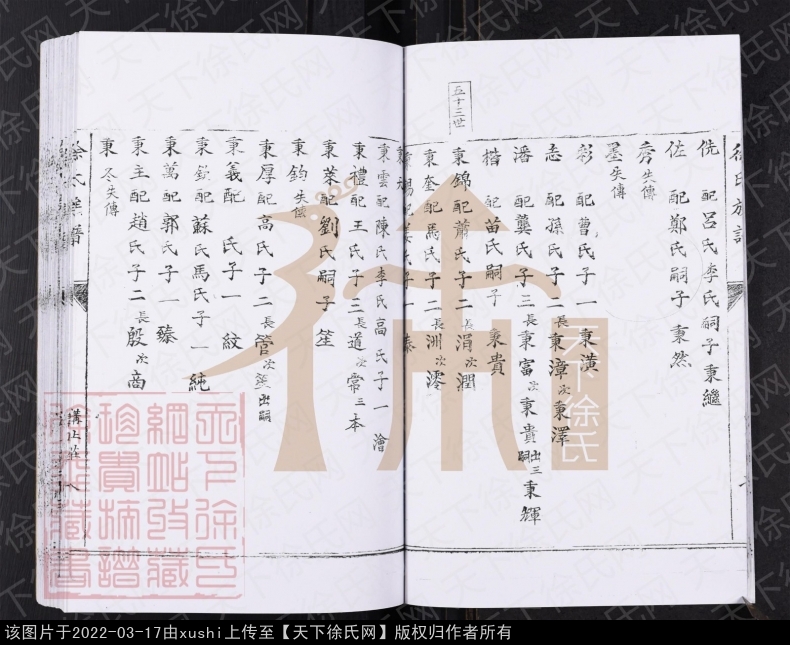 徐氏族譜
侁 配呂氏李氏嗣子秉繼
佐 配鄭氏嗣子秉然
秀 失傳
墨 失傳
五十三世
彰 配曹氏子一秉潢
志 配孫氏子二長秉漳次秉澤
潘 配龔氏子三長秉富次秉貴出嗣三秉輝
楷 配苗氏嗣子秉貴
秉錦配蕭氏子二長涓次潤
秉奎配馬氏子二長洲次澪
秉雲配陳氏李氏高氏子一澮
秉禮配王氏子三長道次常三本
秉萊配劉氏嗣子笙
秉鈞失傳
秉厚配高氏子二長管次笙出嗣
秉義配 氏子一紋
配蘇氏馬氏子一純
秉萬配郭氏子一臻
秉主配趙氏子二長殷次商
秉冬失傳
徐氏族譜
講上莊
天下徐氏
天下徐氏网
该图片于2022-03-17由xushi上传至【天下徐氏网】版权归作者所有